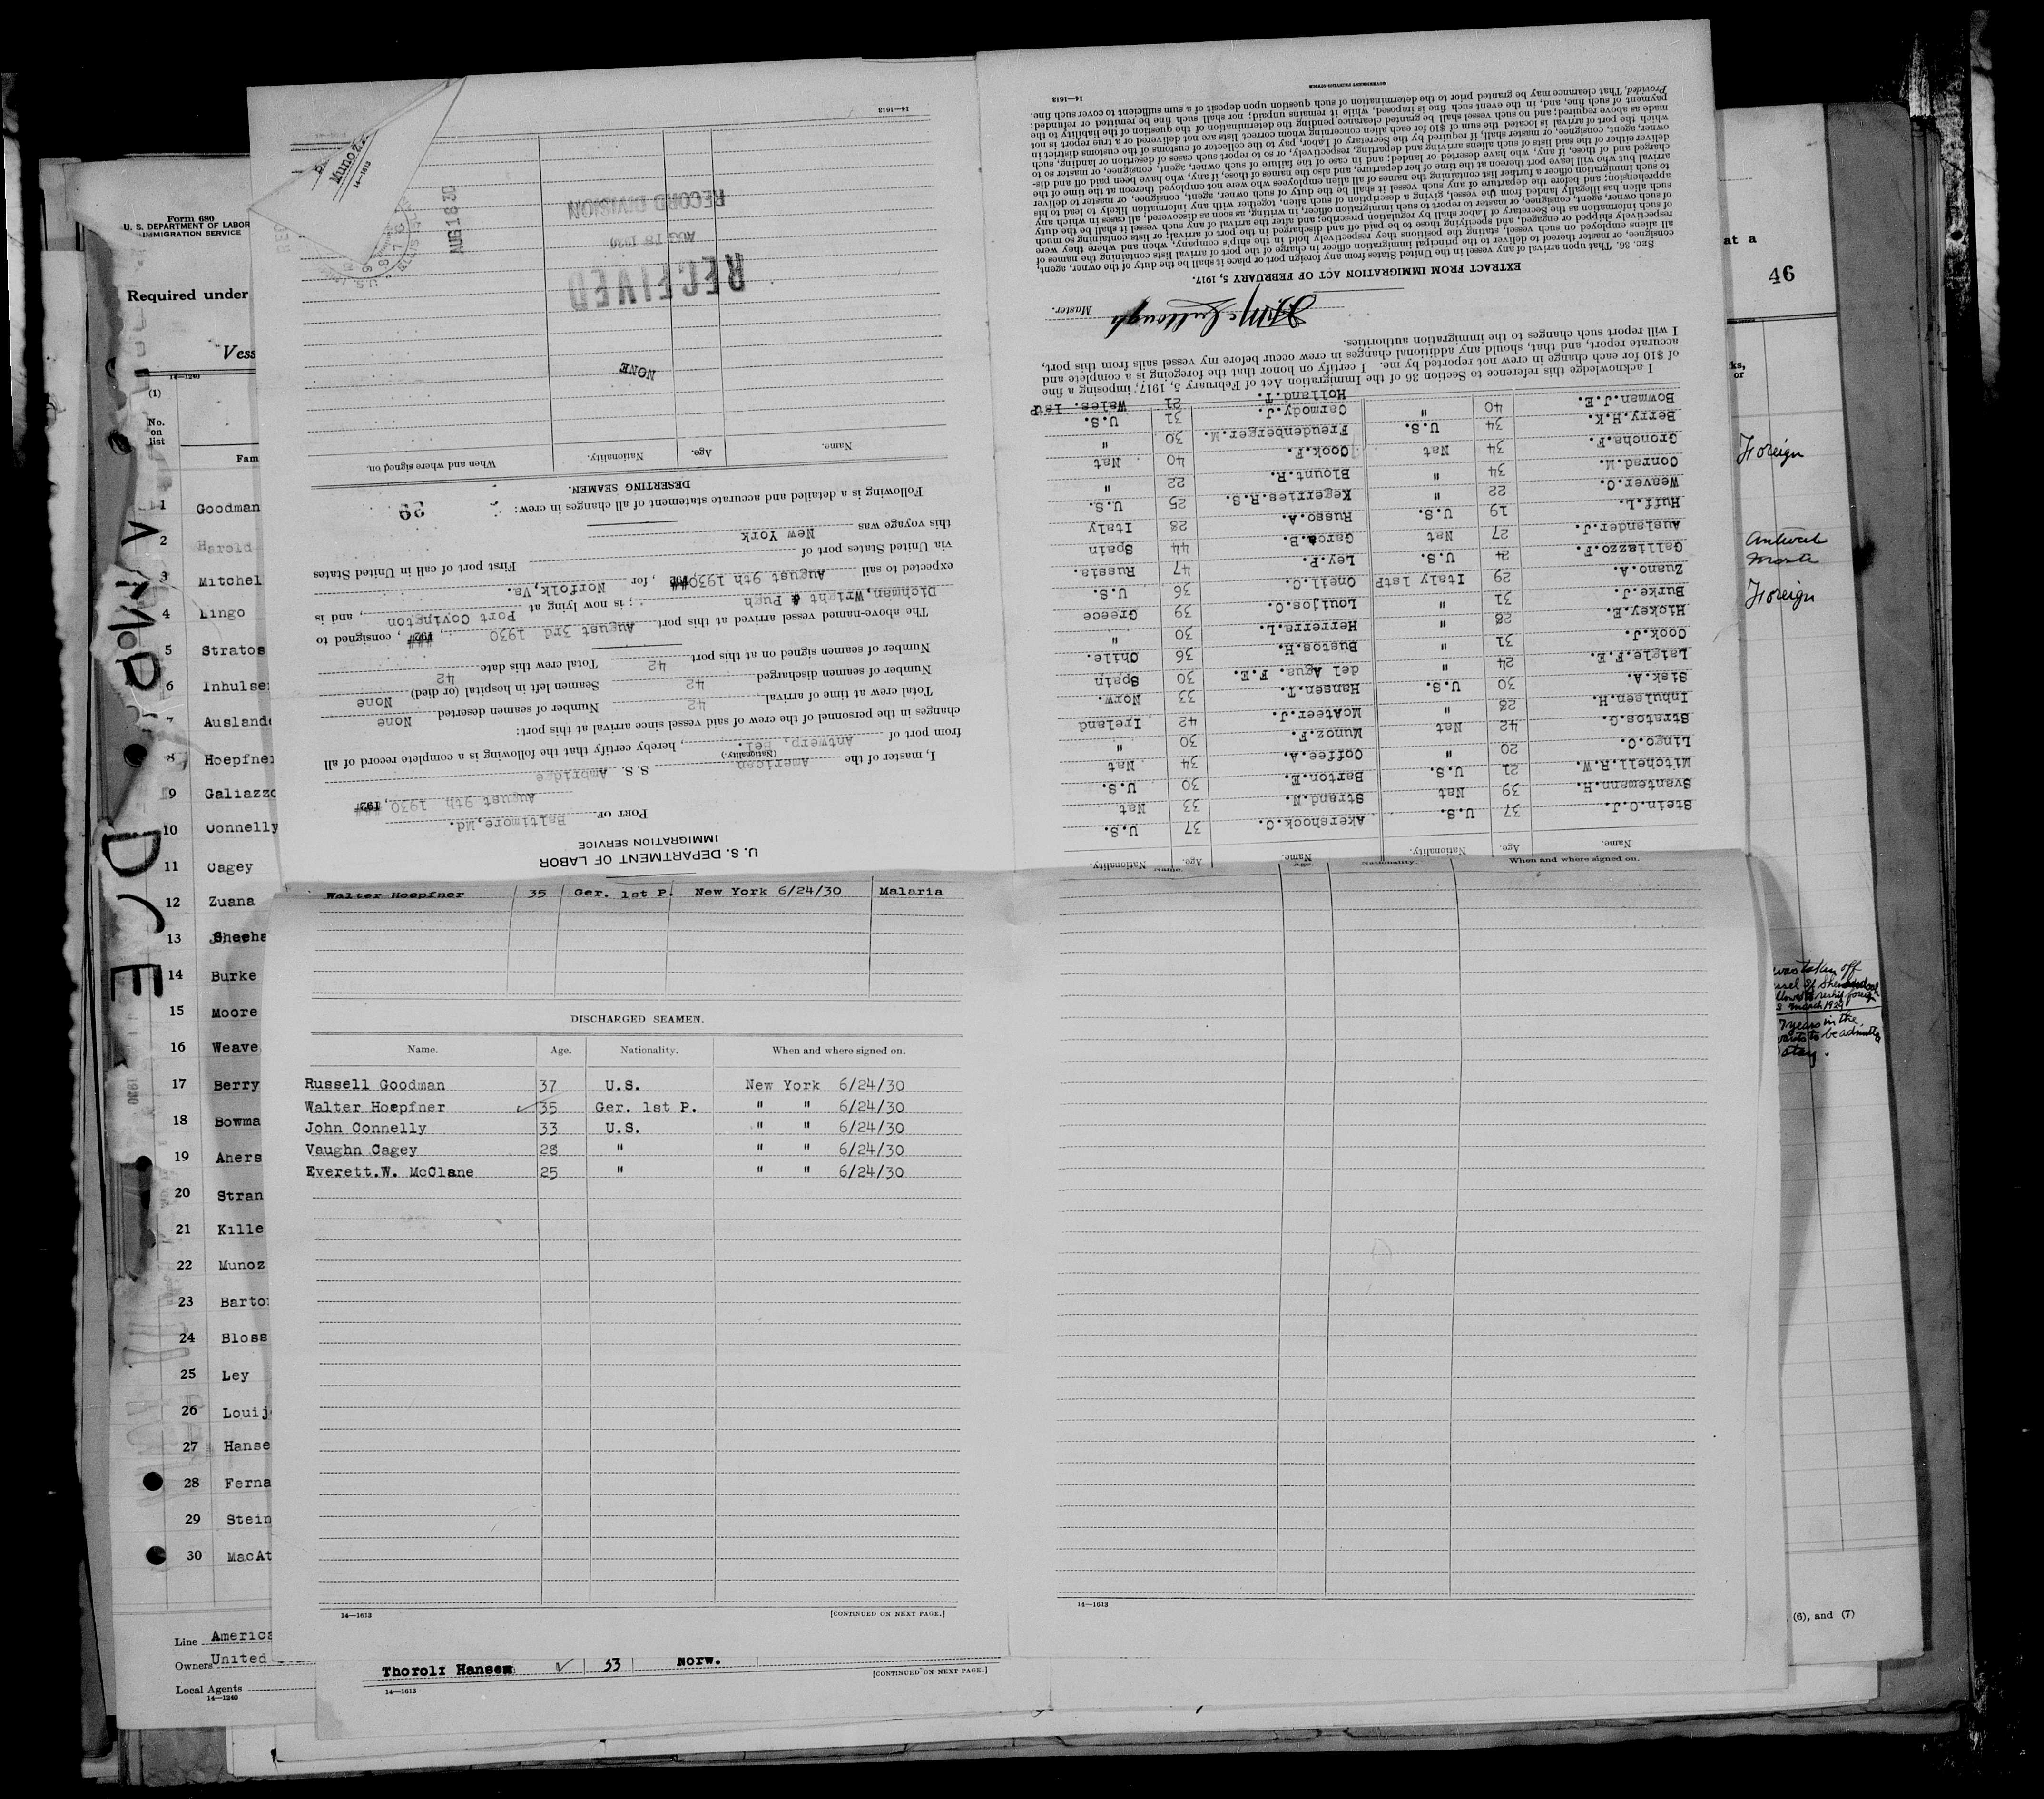 Form 680
U. S. DEPARTMENT OF LABOR
IMMIGRATION SERVICE
Required under
Vess
14—1240
(1)
No.
on
list
Fam
1 Goodman
2 Harold
3 Mitchel
4 Lingo
5 Stratos
6 Inhulse
7 Auslande
8 Hoepfner
9 Galiazzo
10 Connelly
11 Cagey
12 Zuana
13 Sheeha
14 Burke
15 Moore
16 Weave
17 Berry
18 Bowma
19 Ahers
20 Stran
21 Kille
22 Munoz
23 Barto
24 Bloss
25 Ley
26 Louij
27 Hanse
28 Ferna
29 Stein
30 MacAt
Line America
Owners United
Local Agents
14—1240
U. S. DEPARTMENT OF LABOR
IMMIGRATION SERVICE
PORT OF Baltimore,Md.
August 9th 1930
I, master of the American S. S. Ambridge
(Nationality.)
from port of Antwerp, Bel. , hereby certify that the following is a complete record of all
changes in the personnel of the crew of said vessel since arrival at this port:
Total crew at time of arrival 42 Number of seamen deserted None
Number of seamen discharged 42 Seamen left in hospital (or died) None
Number of seamen signed on at this port 42 Total crew this date 42
The above-named vessel arrived at this port August 3rd 1930 , consigned to
Dichman,Wright & Pugh ; is now lying at Port Covington , and is
expected to sail August 9th 1930 , for Norfolk,Va.
via United States port of First port of call in United States
this voyage was New York
Following is a detailed and accurate statement of all changes in crew: 39
DESERTING SEAMEN.
Name. Age. Nationality. When and where signed on.
NONE
RECEIVED
AUG 18 1930
RECORD DIVISION
AUG 18 30
14—1613
Munoz
14—1613
Name. Age. Nationality. Name. Age. Nationality.
Stein.C.J. 37 U.S. Akershook.C. 37 U.S.
Svantemann.H. 39 Nat Strand.N. 33 Nat
Mitchell.R.W. 21 U.S. Barton.E. 30 U.S.
Lingo.C. 20 " Coffee.A. 34 Nat
Stratos.G. 42 Nat Munoz.F. 30 "
Inhulsen.H. 28 " McAteer.J. 42 Ireland
Sisk.A. 30 U.S. Hansen.T. 33 Norw.
Laigle.F.E. 24 " del Agua. F.E. 30 Spain
Cook.J. 31 " Bustos.H. 36 Chile.
Hickey.E. 28 " Herrerra.L. 30 "
Burke.J. 31 " Louijos.C. 39 Greece
Zuano.A. 29 Italy 1stP Oneil.C. 36 U.S.
Galliazzo.F. 24 U.S. Ley.P. 47 Russia.
Auslander.J. 27 Nat Garca.B. 44 Spain
Huff.L. 19 U.S. Russo.A. 28 Italy
Weaver.O. 22 " Kegerries.R.S. 25 U.S.
Conrad.M. 34 " Blount.R. 22 "
Groncha.F. 34 Nat Cook.F. 40 Nat
Berry.H.K. 34 U.S. Freudenberger.M. 30 "
Bowman.J.E. 40 " Carmody.J. 31 U.S.
Holland.T. 21 Wales. 1stP
I acknowledge this reference to Section 36 of the Immigration Act of February 5, 1917, imposing a fine
of $10 for each change in crew not reported by me. I certify on honor that the foregoing is a complete and
accurate report, and that, should any additional changes in crew occur before my vessel sails from this port,
I will report such changes to the immigration authorities.
McCullough Master.
EXTRACT FROM IMMIGRATION ACT OF FEBRUARY 5, 1917.
SEC. 36. That upon arrival of any vessel in the United States from any foreign port or place it shall be the duty of the owner, agent,
consignee, or master thereof to deliver to the principal immigration officer in charge of the port of arrival lists containing the names of
all aliens employed on such vessel, stating the positions they respectively hold in the ship's company, when and where they were
respectively shipped or engaged, and specifying those to be paid off and discharged in the port of arrival; or lists containing so much
of such information as the Secretary of Labor shall by regulation prescribe; and after the arrival of any such vessel it shall be the duty
of such owner, agent, consignee, or master to report to such immigration officer, in writing, as soon as discovered, all cases in which any
such alien has illegally landed from the vessel, giving a description of such alien, together with any information likely to lead to his
apprehension; and before the departure of any such vessel it shall be the duty of such owner, agent, consignee, or master to deliver
to such immigration officer a further list containing the names of all alien employees who were not employed thereon at the time of the
arrival but who will leave port thereon at the time of her departure, and also the names of those, if any, who have been paid off and dis-
charged and of those, if any, who have deserted or landed; and in case of the failure of such owner, agent, consignee, or master so to
deliver either of the said lists of such aliens arriving and departing, respectively, or so to report such cases of desertion or landing, such
owner, agent, consignee, or master shall, if required by the Secretary of Labor, pay to the collector of customs of the customs district in
which the port of arrival is located the sum of $10 for each alien concerning whom correct lists are not delivered or a true report is not
made as above required; and no such vessel shall be granted clearance pending the determination of the question of the liability to the
payment of such fine, and, in the event such fine is imposed, while it remains unpaid; nor shall such fine be remitted or refunded:
Provided, That clearance may be granted prior to the determination of such question upon deposit of a sum sufficient to cover such fine.
14—1613
GOVERNMENT PRINTING OFFICE
Walter Hoepfner 35 Ger. 1st P. New York 6/24/30 Malaria
DISCHARGED SEAMEN.
Name. Age. Nationality. When and where signed on.
Russell Goodman 37 U.S. New York 6/24/30
Walter Hoepfner 35 Ger. 1st P. " " 6/24/30
John Connelly 33 U.S. " " 6/24/30
Vaughn Cagey 28 " " " 6/24/30
Everett.W. McClane 25 " " " 6/24/30
14—1613 [CONTINUED ON NEXT PAGE.]
Thorolf Hansen 33 Norw.
14—1613 [CONTINUED ON NEXT PAGE.]
Name. Age. Nationality. When and where signed on.
14—1613
at a
46
ks,
or
Foreign
Foreign
was taken off
March 1929
7 years in the
wants to be admitted
stay.
(6), and (7)